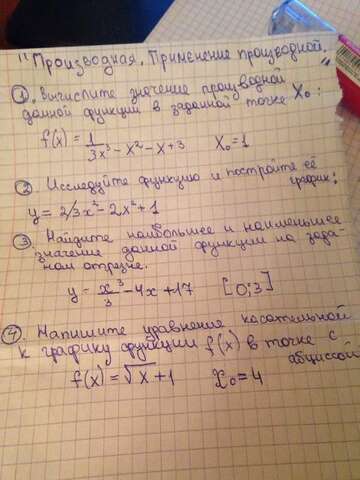 "Производная. Применение производной."
① Вычислите значение производной
данной функции в заданной точке X₀:
f(x) = 1/3x³ - x² - x + 3 X₀ = 1
② Исследуйте функцию и постройте её
график:
y = 2/3x³ - 2x² + 1
③ Найдите наибольшее и наименьшее
значение данной функции на задан-
ном отрезке.
y = x³/3 - 4x + 17 [0;3]
④ Напишите уравнение касательной
к графику функции f(x) в точке с
абциссой
f(x) = √x + 1 X₀ = 4